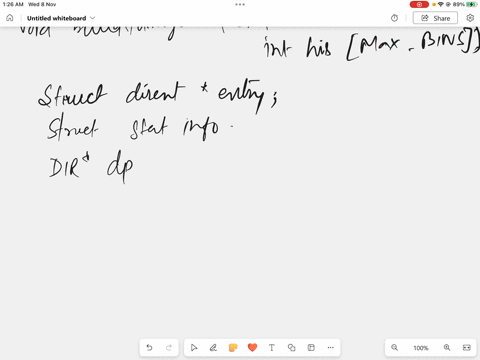 1:26 AM Wed 8 Nov
89%
Untitled whiteboard
Share
void
int his [Max_BINS])
Struct dirent * entry;
Struct stat info.
DIR* dp
T
100%